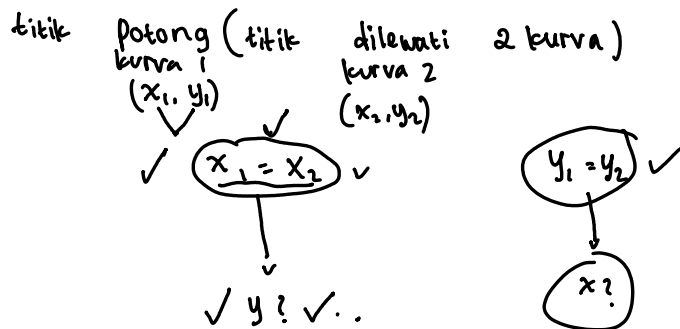 titik potong (titik dilewati 2 kurva)
kurva 1 kurva 2
(x₁, y₁) (x₂, y₂)
✓ x₁ = x₂ ✓ y₁ = y₂ ✓
✓ y? ✓.. x?